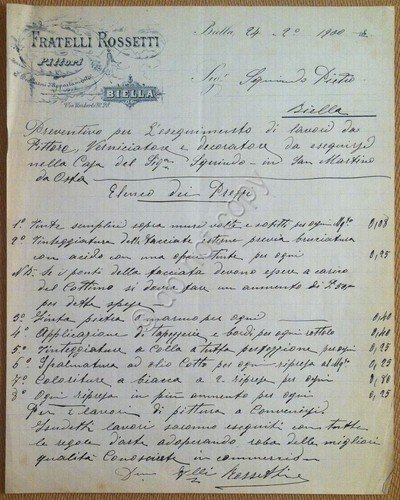 FRATELLI ROSSETTI
Pittori
BIELLA
Via Umberto N. 20
Biella, 24. 2º 1900
Sigr Squindo Pietro
Biella
Preventivo per L'eseguimento di lavori da
Pittore, Verniciatore e decoratore da eseguirsi
nella Casa del Sigr Squindo in San Martino
da Osta
Elenco dei Prezzi
1º Tinte semplici sopra muro volte e soffitti per ogni Mqº 0,08
2º Tinteggiatura delle facciate esterne previa bruciatura
con acido con una o più tinte per ogni 0,25
NB. Se i ponti della facciata devono essere a carico
del Cottimo si dovrà fare un aumento di
per dette spese
3º Tinta pietra o marmo per ogni 0,40
4º Applicazione di tapezzerie e bordi per ogni rottolo 0,40
5º Tinteggiature a colla a tutta perfezione per ogni 0,25
6º Spalmatura ad olio Cotto per ogni ripresa al Mqº 0,25
7º Coloriture a biacca a 2 riprese per ogni 0,80
8º Ogni ripresa in più aumento per ogni 0,25
Per i lavori di pittura a Convenirsi.
I sudetti lavori saranno eseguiti con tutte
le regole d'arte adoperando roba delle migliori
qualità Conosciute in commercio
F.lli Rossetti